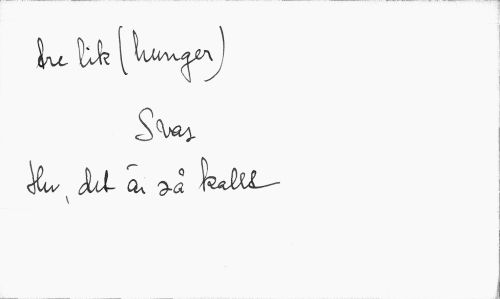 dre lik (hunger)
Svas
Hu, det är så kallt